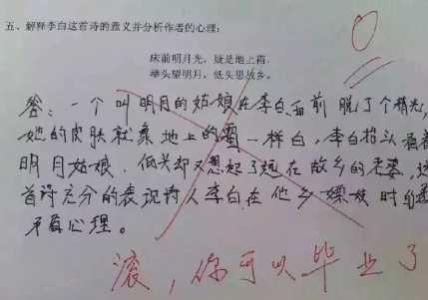 五、解释李白这首诗的意义并分析作者的心理:
床前明月光,疑是地上霜。
举头望明月,低头思故乡。
答:一个叫明月的姑娘在李白面前脱了个精光,
她的皮肤就象地上的霜一样白,李白抬头看着
明月姑娘,低头却又想起了远在故乡的老婆,这
首诗充分的表现诗人李白在他乡嫖妓时的
矛盾心理。
滚,你可以毕业了